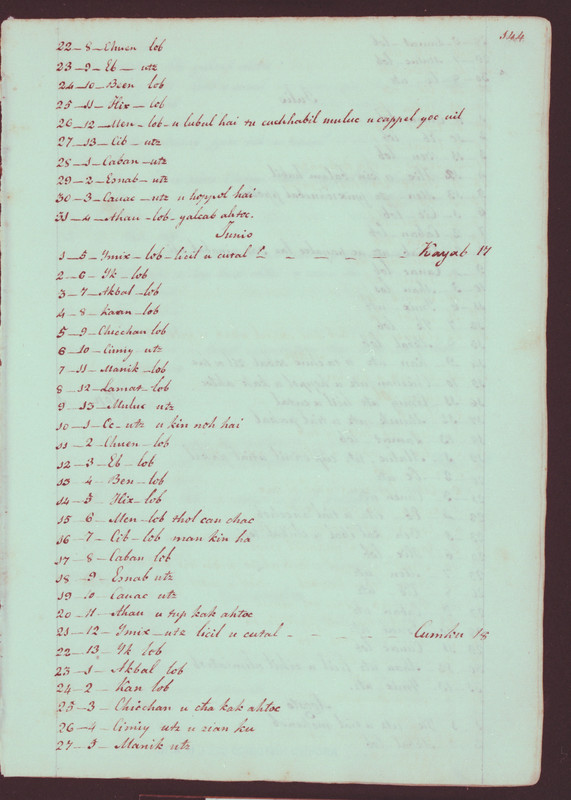 144
22_8_Chuen lob
23_9_Eb_utz
24_10_Ben lob
25_11_Hix_lob
26_12_Men_lob_u lubul hai tu cuchhabil muluc u cappel yoc uil
27_13_Cib_utz
28_1_Caban_utz
29_2_Esnab_utz
30_3_Cauac_utz u hoppol hai
31_4_Ahau_lob_yalcab ahtoc.
Junio
1_5_Ymix_lob_licil u cutal _ _ _ _ _ _ Kayab 17
2_6_Yk_lob
3_7_Akbal_lob
4_8_Kaan_lob
5_9_Chicchan lob
6_10_Cimiy utz
7_11_Manik_lob
8_12_Lamat_lob
9_13_Muluc utz
10_1_Oc_utz u kin noh hai
11_2_Chuen_lob
12_3_Eb_lob
13_4_Ben_lob
14_5_Hix_lob
15_6_Men_lob thol can chac
16_7_Cib_lob man kin ha
17_8_Caban lob
18_9_Esnab utz
19_10_Cauac utz
20_11_Ahau u tup kak ahtoc
21_12_Ymix_utz licil u cutal _ _ _ _ _ Cumku 18
22_13_Yk lob
23_1_Akbal lob
24_2_Kan lob
25_3_Chicchan u cha kak ahtoc
26_4_Cimiy utz u zian ku
27_5_Manik utz